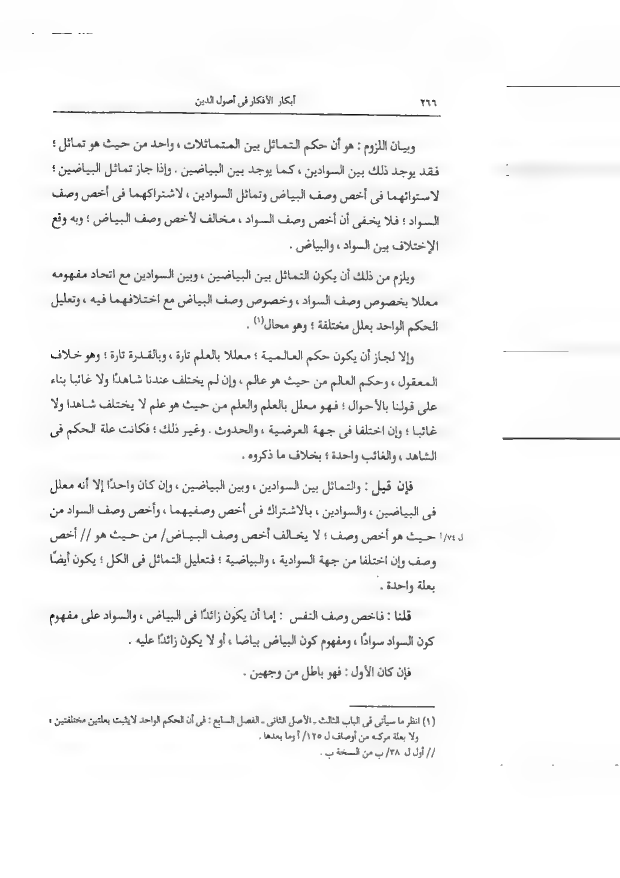 ٢٦٦ أبكار الأفكار فى أصول الدين
وبيان اللزوم : هو أن حكم التماثل بين المتماثلات ، واحد من حيث هو تماثل ؛
فقد يوجد ذلك بين السوادين ، كما يوجد بين البياضين . وإذا جاز تماثل البياضين ؛
لاستوائهما فى أخص وصف البياض وتماثل السوادين ، لاشتراكهما فى أخص وصف
السواد ؛ فلا يخفى أن أخص وصف السواد ، مخالف لأخص وصف البياض ؛ وبه وقع
الإختلاف بين السواد ، والبياض .
ويلزم من ذلك أن يكون التماثل بين البياضين ، وبين السوادين مع اتحاد مفهومه
معللا بخصوص وصف السواد ، وخصوص وصف البياض مع اختلافهما فيه ، وتعليل
الحكم الواحد بعلل مختلفة ؛ وهو محال(١) .
وإلا لجاز أن يكون حكم العالمية ؛ معللا بالعلم تارة ، وبالقدرة تارة ؛ وهو خلاف
المعقول ، وحكم العالم من حيث هو عالم ، وإن لم يختلف عندنا شاهدًا ولا غائبا بناء
على قولنا بالأحوال ؛ فهو معلل بالعلم والعلم من حيث هو علم لا يختلف شاهدا ولا
غائبا ؛ وإن اختلفا فى جهة العرضية ، والحدوث . وغير ذلك ؛ فكانت علة الحكم فى
الشاهد ، والغائب واحدة ؛ بخلاف ما ذكروه .
فإن قيل : والتماثل بين السوادين ، وبين البياضين ، وإن كان واحدًا إلا أنه معلل
فى البياضين ، والسوادين ، بالاشتراك فى أخص وصفيهما ، وأخص وصف السواد من
ل ٧٤/أ حيث هو أخص وصف ؛ لا يخالف أخص وصف البياض/ من حيث هو // أخص
وصف وإن اختلفا من جهة السوادية ، والبياضية ؛ فتعليل التماثل فى الكل ؛ يكون أيضًا
بعلة واحدة .
قلنا : فاخص وصف النفس : إما أن يكون زائدًا فى البياض ، والسواد على مفهوم
كون السواد سوادًا ، ومفهوم كون البياض بياضا ، أو لا يكون زائدًا عليه .
فإن كان الأول : فهو باطل من وجهين .
(١) انظر ما سيأتى فى الباب الثالث ـ الأصل الثانى ـ الفصل السابع : فى أن الحكم الواحد لا يثبت بعلتين مختلفتين ؛
ولا بعلة مركبه من أوصاف ل ١٢٥/ أ وما بعدها .
// أول ل ٣٨/ ب من النسخة ب .